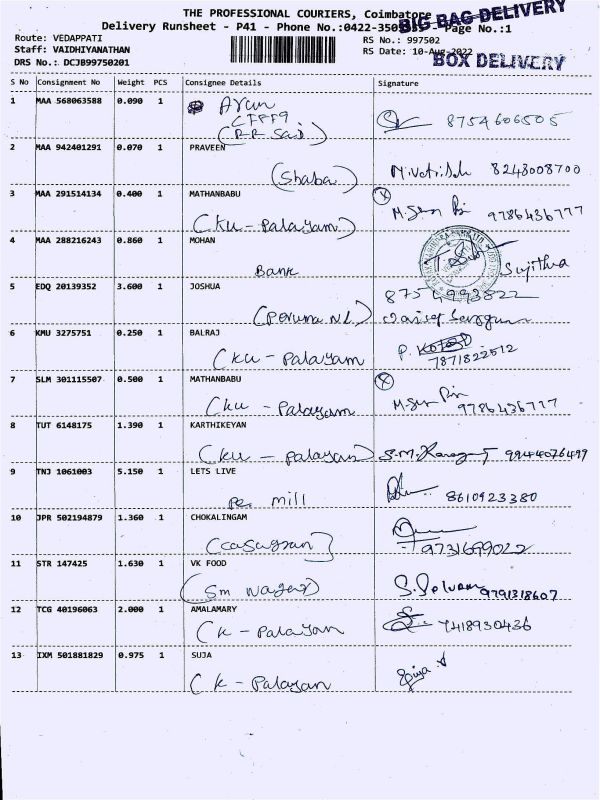 THE PROFESSIONAL COURIERS, Coimbatore
BIG BAG DELIVERY
Delivery Runsheet - P41 - Phone No.:0422-350 Page No.:1
Route: VEDAPPATI
RS No.: 997502
Staff: VAIDHIYANATHAN
RS Date: 10-Aug-2022
BOX DELIVERY
DRS No.: DCJB99750201
S No Consignment No Weight PCS Consignee Details Signature
1 MAA 568063588 0.090 1 Arun
8754606505
2 MAA 942401291 0.070 1 PRAVEEN
(Shaba) 8248008700
3 MAA 291514134 0.400 1 MATHANBABU
(KU-Palayam) 9786436777
4 MAA 288216243 0.860 1 MOHAN
Bank Sujitha
5 EDQ 20139352 3.600 1 JOSHUA
8754993822
6 KMU 3275751 0.250 1 BALRAJ
(KU-Palayam) 7871822512
7 SLM 301115507 0.500 1 MATHANBABU
(KU-Palayam 9786436777
8 TUT 6148175 1.390 1 KARTHIKEYAN
(KU-Palayam) 9944076499
9 TNJ 1061003 5.150 1 LETS LIVE
mill 8610923380
10 JPR 502194879 1.360 1 CHOKALINGAM
9731699022
11 STR 147425 1.630 1 VK FOOD
(Sm Nagar) S.Selvam 9791318607
12 TCG 40196063 2.000 1 AMALAMARY
(K-Palayam 7418930436
13 IXM 501881829 0.975 1 SUJA
(K-Palayam